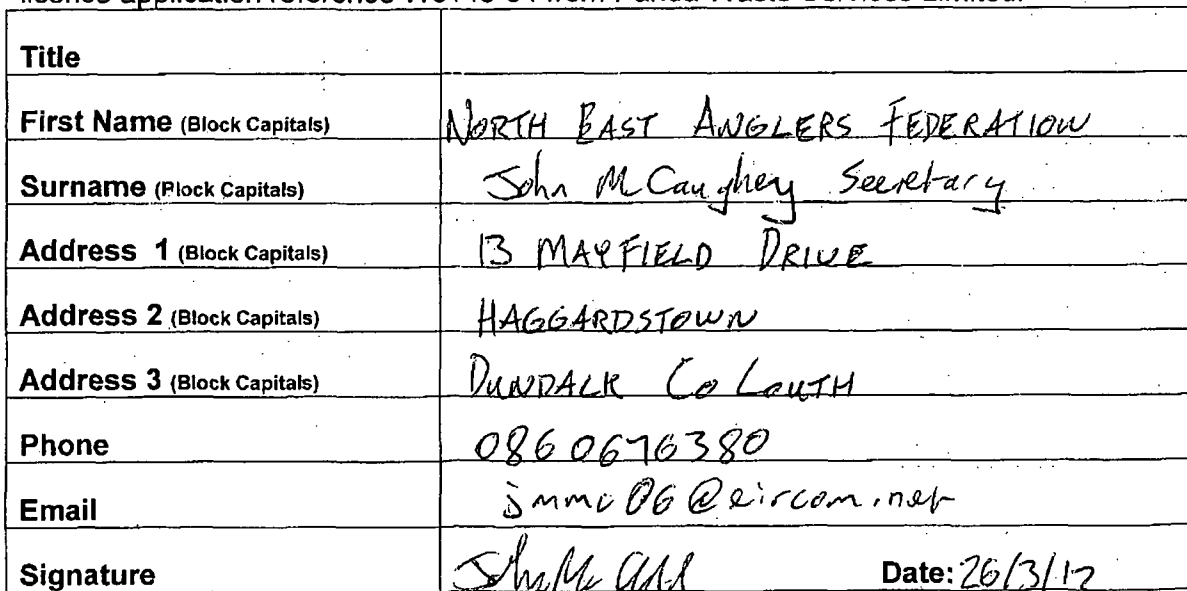 license application reference W0140-04 from Panda Waste Services Limited.
Title
First Name (Block Capitals) NORTH EAST ANGLERS FEDERATION
Surname (Block Capitals) John McCaughey Secretary
Address 1 (Block Capitals) 13 MAYFIELD DRIVE
Address 2 (Block Capitals) HAGGARDSTOWN
Address 3 (Block Capitals) DUNDALK Co LOUTH
Phone 0860676380
Email jmmc06@eircom.net
Signature Date: 26/3/12